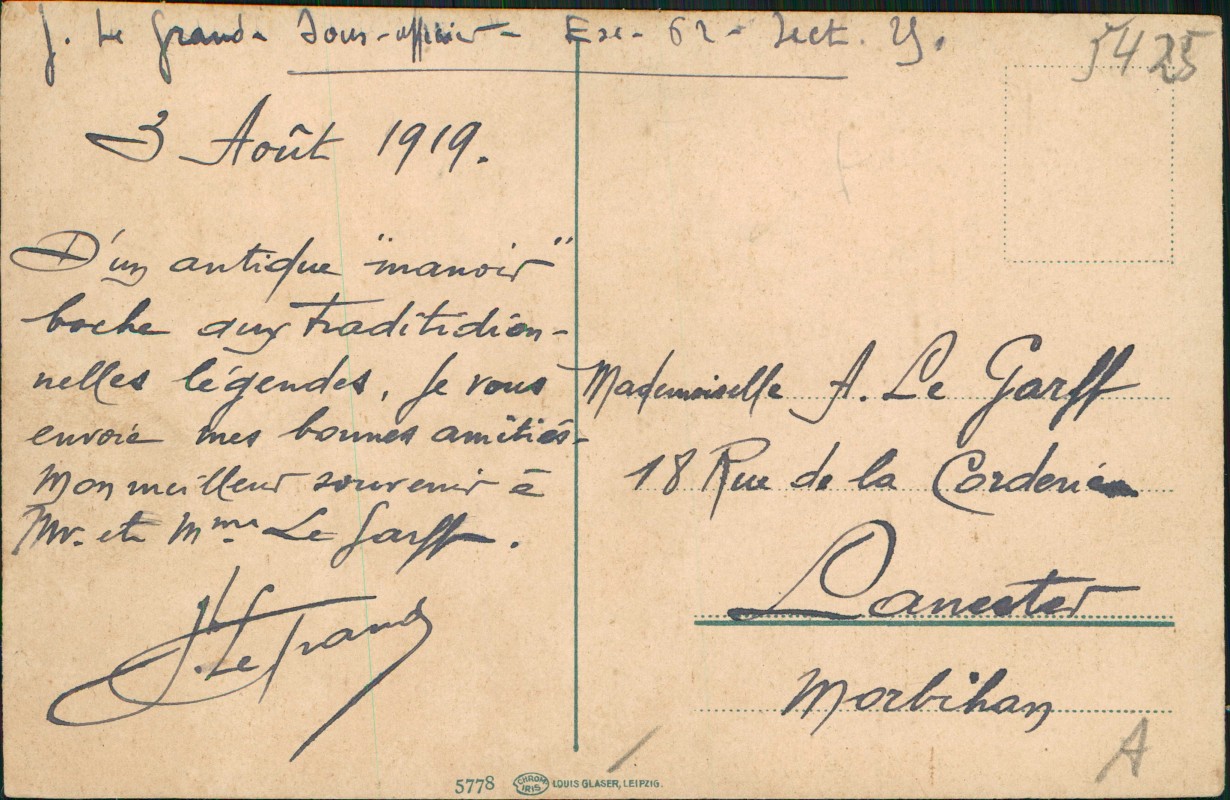 J. Le Grand - Sous-officier - Esc. 62 - Sect. 25.
5425
3 Août 1919.
D'un antique "manoir"
boche aux traditidion-
nelles légendes, je vous
envoie mes bonnes amitiés-
Mon meilleur souvenir à
Mr. et Mme Le Garff.
J. Le Grand
Mademoiselle A. Le Garff
18 Rue de la
Lanester
Morbihan
A
5778 CHROM IRIS LOUIS GLASER, LEIPZIG.